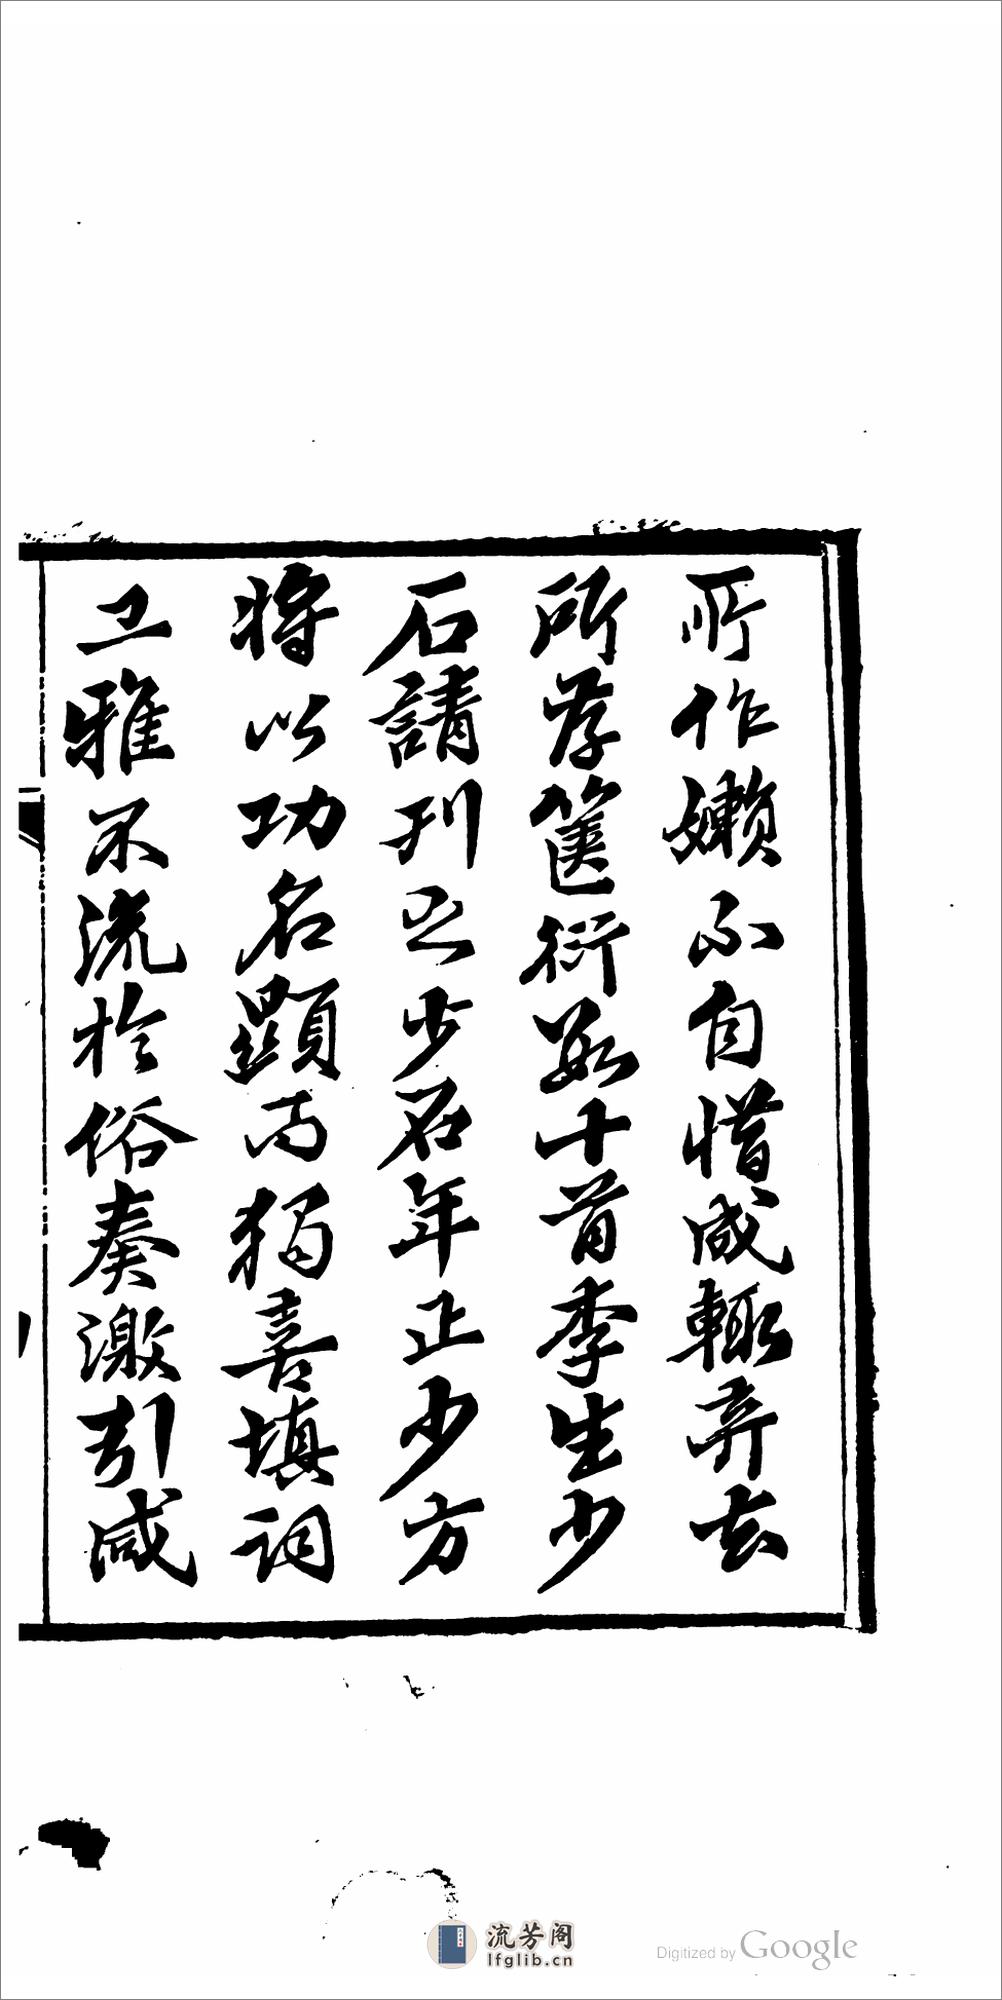 所作嬾不自惜咸輙弃去
所存篋衍數十首李生少
石請刊之少石年正少方
將以功名顯而獨喜填詞
工雅不流於俗奏激引減
流芳阁
lfglib.cn
Digitized by Google